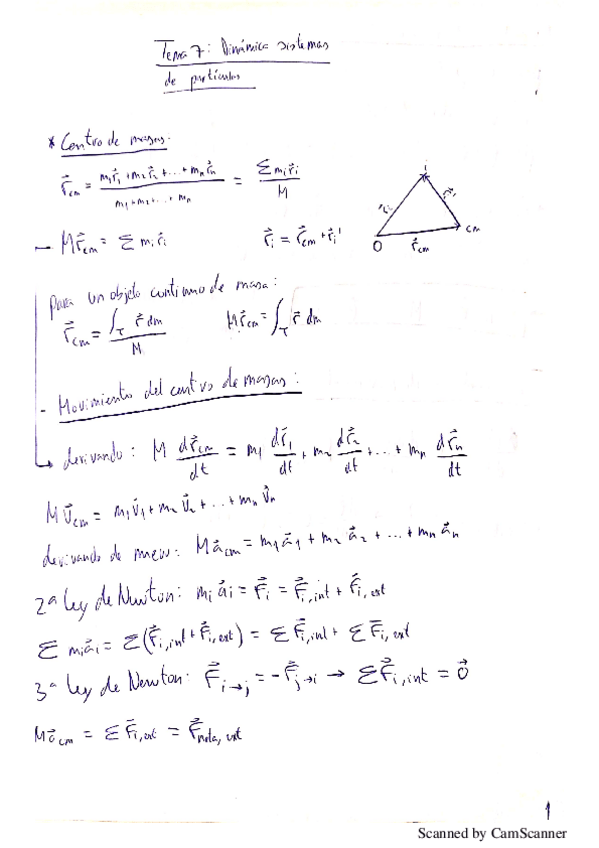 Tema 7: Dinámica sistemas
de partículas
* Centro de masas:
r⃗cm = (m₁r⃗₁ + m₂r⃗₂ + ... + mₙr⃗ₙ) / (m₁ + m₂ + ... + mₙ) = Σmᵢr⃗ᵢ / M
- Mr⃗cm = Σ mᵢr⃗ᵢ r⃗ᵢ = r⃗cm + r⃗ᵢ'
i
r⃗ᵢ r⃗ᵢ'
O r⃗cm cm
para un objeto continuo de masa:
r⃗cm = ∫τ r⃗ dm / M Mr⃗cm = ∫τ r⃗ dm
- Movimiento del centro de masas:
derivando: M dr⃗cm/dt = m₁ dr⃗₁/dt + m₂ dr⃗₂/dt + ... + mₙ dr⃗ₙ/dt
Mv⃗cm = m₁v⃗₁ + m₂v⃗₂ + ... + mₙv⃗ₙ
derivando de nuevo: Ma⃗cm = m₁a⃗₁ + m₂a⃗₂ + ... + mₙa⃗ₙ
2ª ley de Newton: mᵢa⃗ᵢ = F⃗ᵢ = F⃗ᵢ,int + F⃗ᵢ,ext
Σ mᵢa⃗ᵢ = Σ(F⃗ᵢ,int + F⃗ᵢ,ext) = ΣF⃗ᵢ,int + ΣF⃗ᵢ,ext
3ª ley de Newton: F⃗i→j = -F⃗j→i → ΣF⃗ᵢ,int = 0⃗
Ma⃗cm = ΣF⃗ᵢ,ext = F⃗neta,ext
1
Scanned by CamScanner